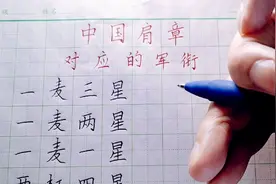 中国肩章
对应的军衔
一麦三星
一麦两星
一麦一星
两杠四星